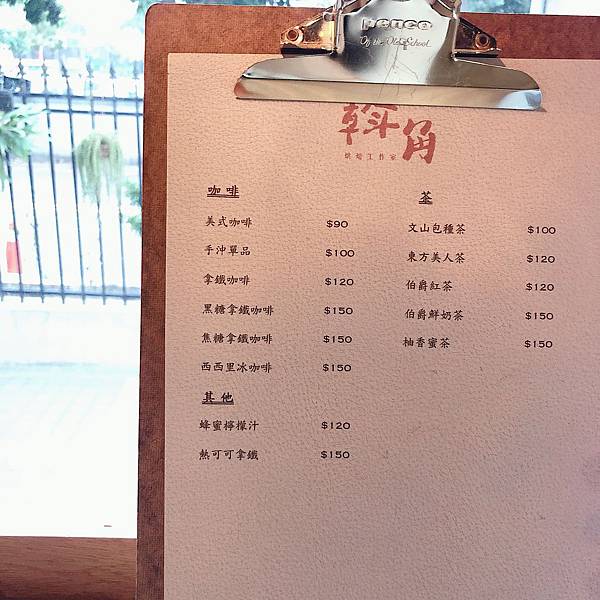 penco
Of the Old School
斡角
烘焙工作家
咖啡
美式咖啡 $90
手沖單品 $100
拿鐵咖啡 $120
黑糖拿鐵咖啡 $150
焦糖拿鐵咖啡 $150
西西里冰咖啡 $150
其他
蜂蜜檸檬汁 $120
熱可可拿鐵 $150
茶
文山包種茶 $100
東方美人茶 $120
伯爵紅茶 $120
伯爵鮮奶茶 $150
柚香蜜茶 $150